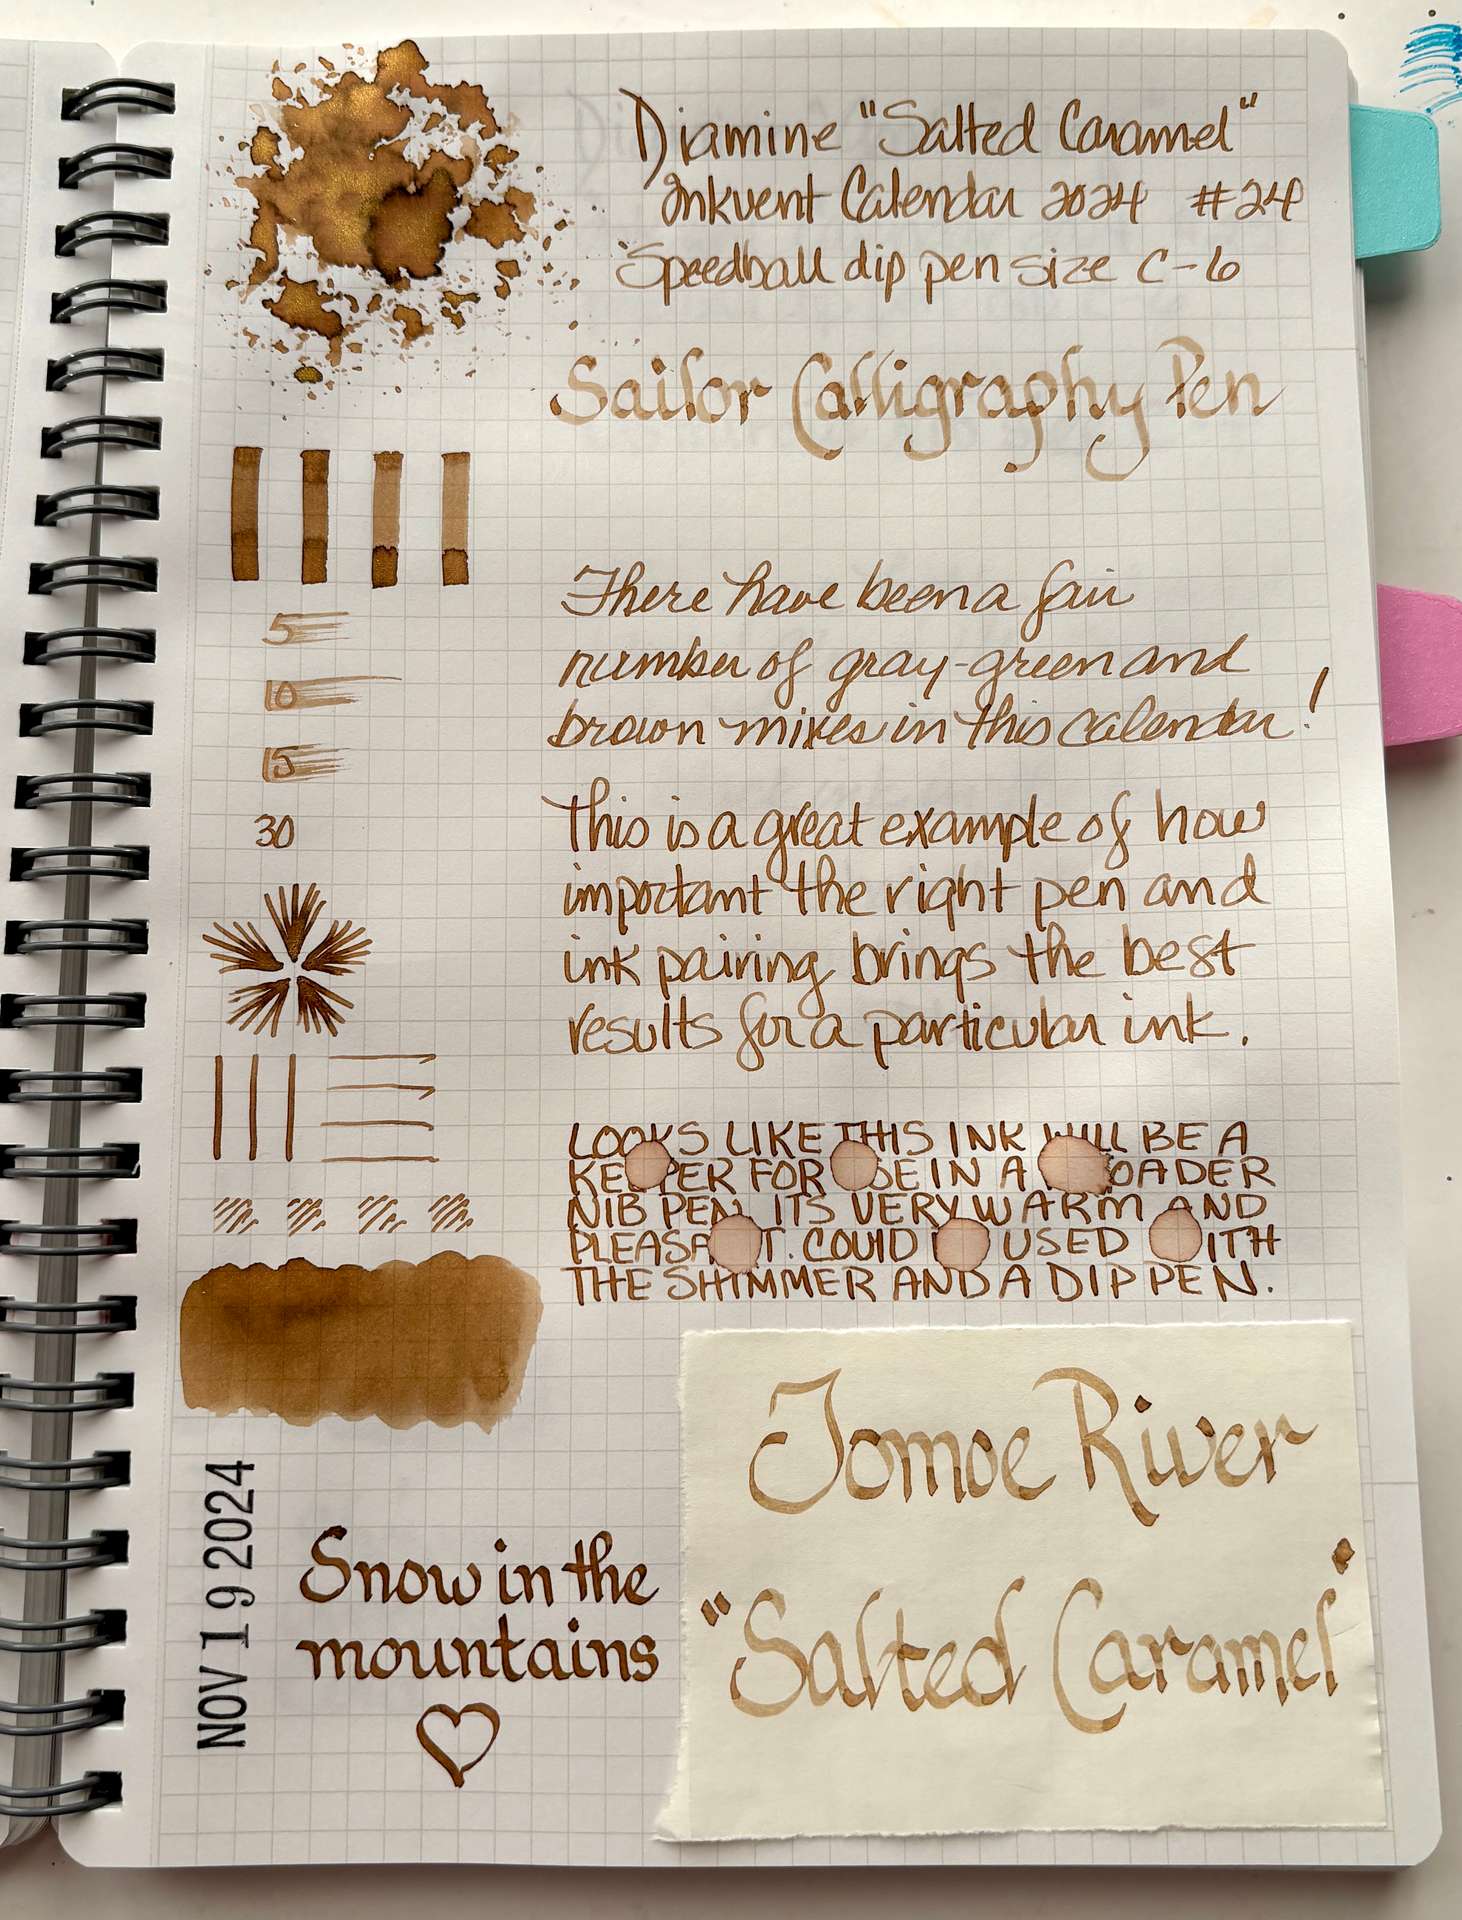 Diamine "Salted Caramel"
Inkvent Calendar 2024 #24
Speedball dip pen size C-6
Sailor Calligraphy Pen
5
10
15
30
There have been a fair
number of gray-green and
brown mixes in this calendar!
This is a great example of how
important the right pen and
ink pairing brings the best
results for a particular ink.
LOOKS LIKE THIS INK WILL BE A
KEEPER FOR USE IN A BROADER
NIB PEN. ITS VERY WARM AND
PLEASANT. COULD BE USED WITH
THE SHIMMER AND A DIP PEN.
NOV 19 2024
Snow in the
mountains
Tomoe River
"Salted Caramel"